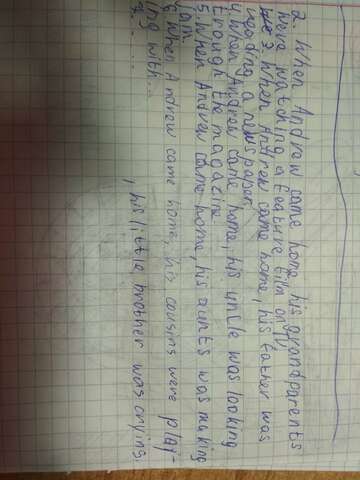 2. When Andrew came home his grandparents
were watching a feature film on TV
3. When Andrew came home, his father was
reading a newspaper.
4 When Andrew came home, his uncle was looking
trough the magazine.
5. When Andrew came home, his aunts was making
jam.
6 When Andrew came home, his cousins were play-
ing with...
7. ... , his little brother was crying.